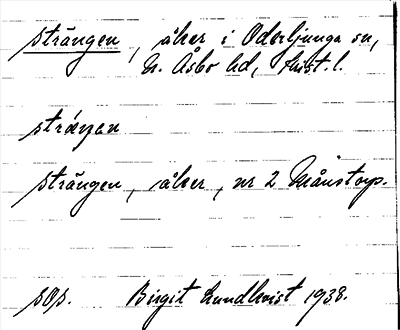 strängen, åker i Oderljunga sn,
N. Åsbo hd, Krist. l.
sträŋən
strängen, åker, nr 2 Månstorp.
sOp. Birgit Lundkvist 1938.